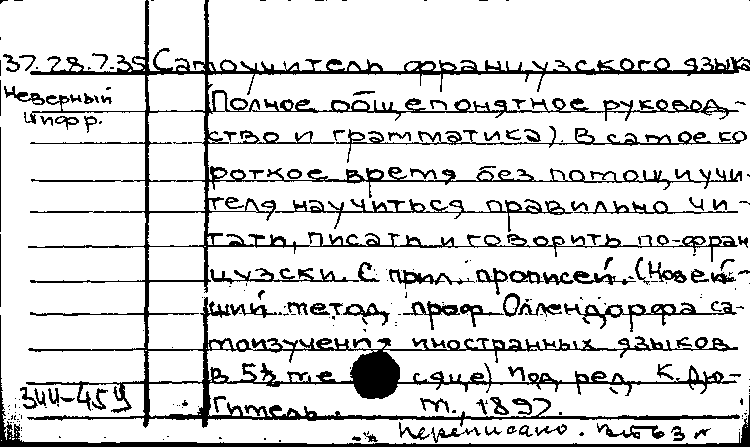 37.28.7.35 Самоучитель французского языка
Неверный
шифр.
(Полное общепонятное руковод-
ство и грамматика). В самое ко
роткое время без помощи учи-
теля научиться правильно чи-
тать, писать и говорить по-фран
цузски. С прил. прописей. (Новей-
ший метод проф Оллендорфа са-
моизучения иностранных языков
в 5½ ме сяце) Под ред. К. Дю-
Гитель.
344-459
М., 1897.
переписано.